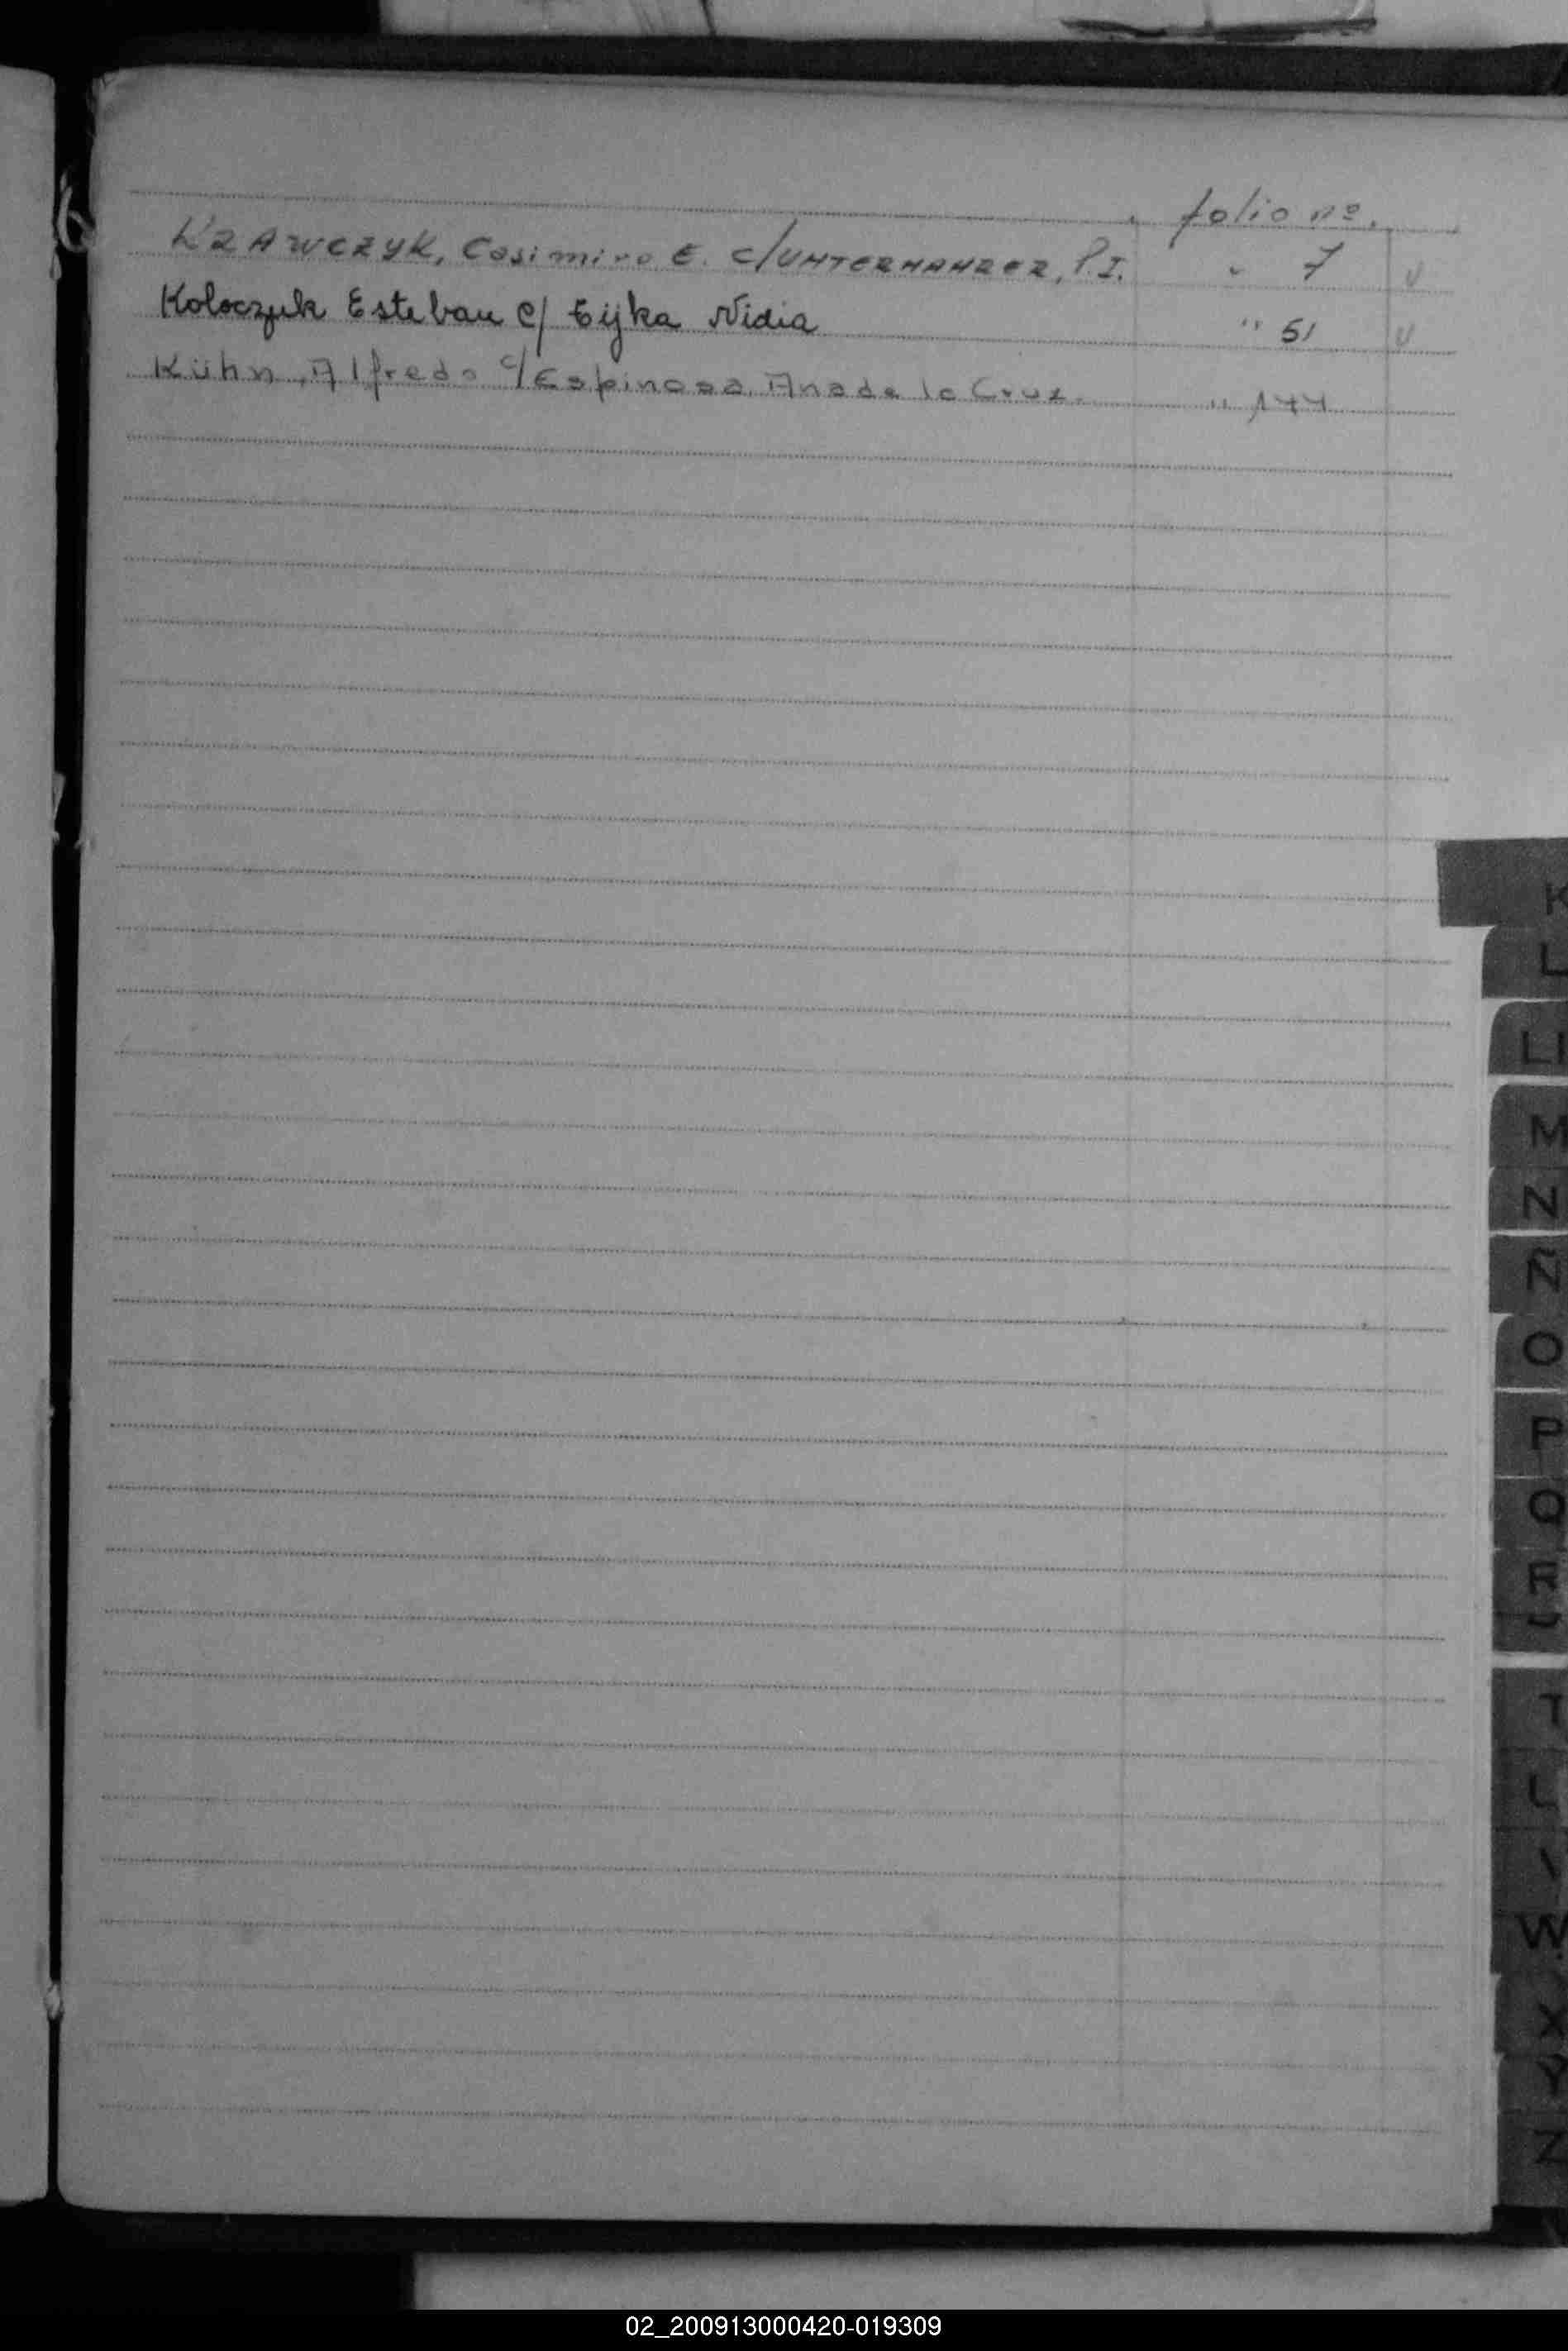 folio nº.
KRAWCZYK, Casimiro E. C/UNTERNAHRER, P.I. " 7 v
Koloczuk Esteban c/ Eijka Nidia " 51 v
Kühn, Alfredo c/ Espinosa, Ana de la Cruz. " 144
K
L
Ll
M
N
Ñ
O
P
Q
R
T
W
X
Y
Z
02_200913000420-019309